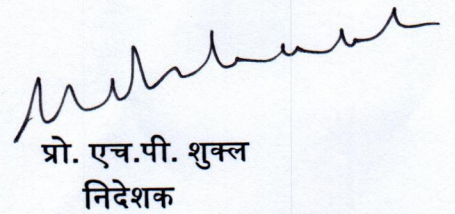 प्रो. एच.पी. शुक्ल
निदेशक